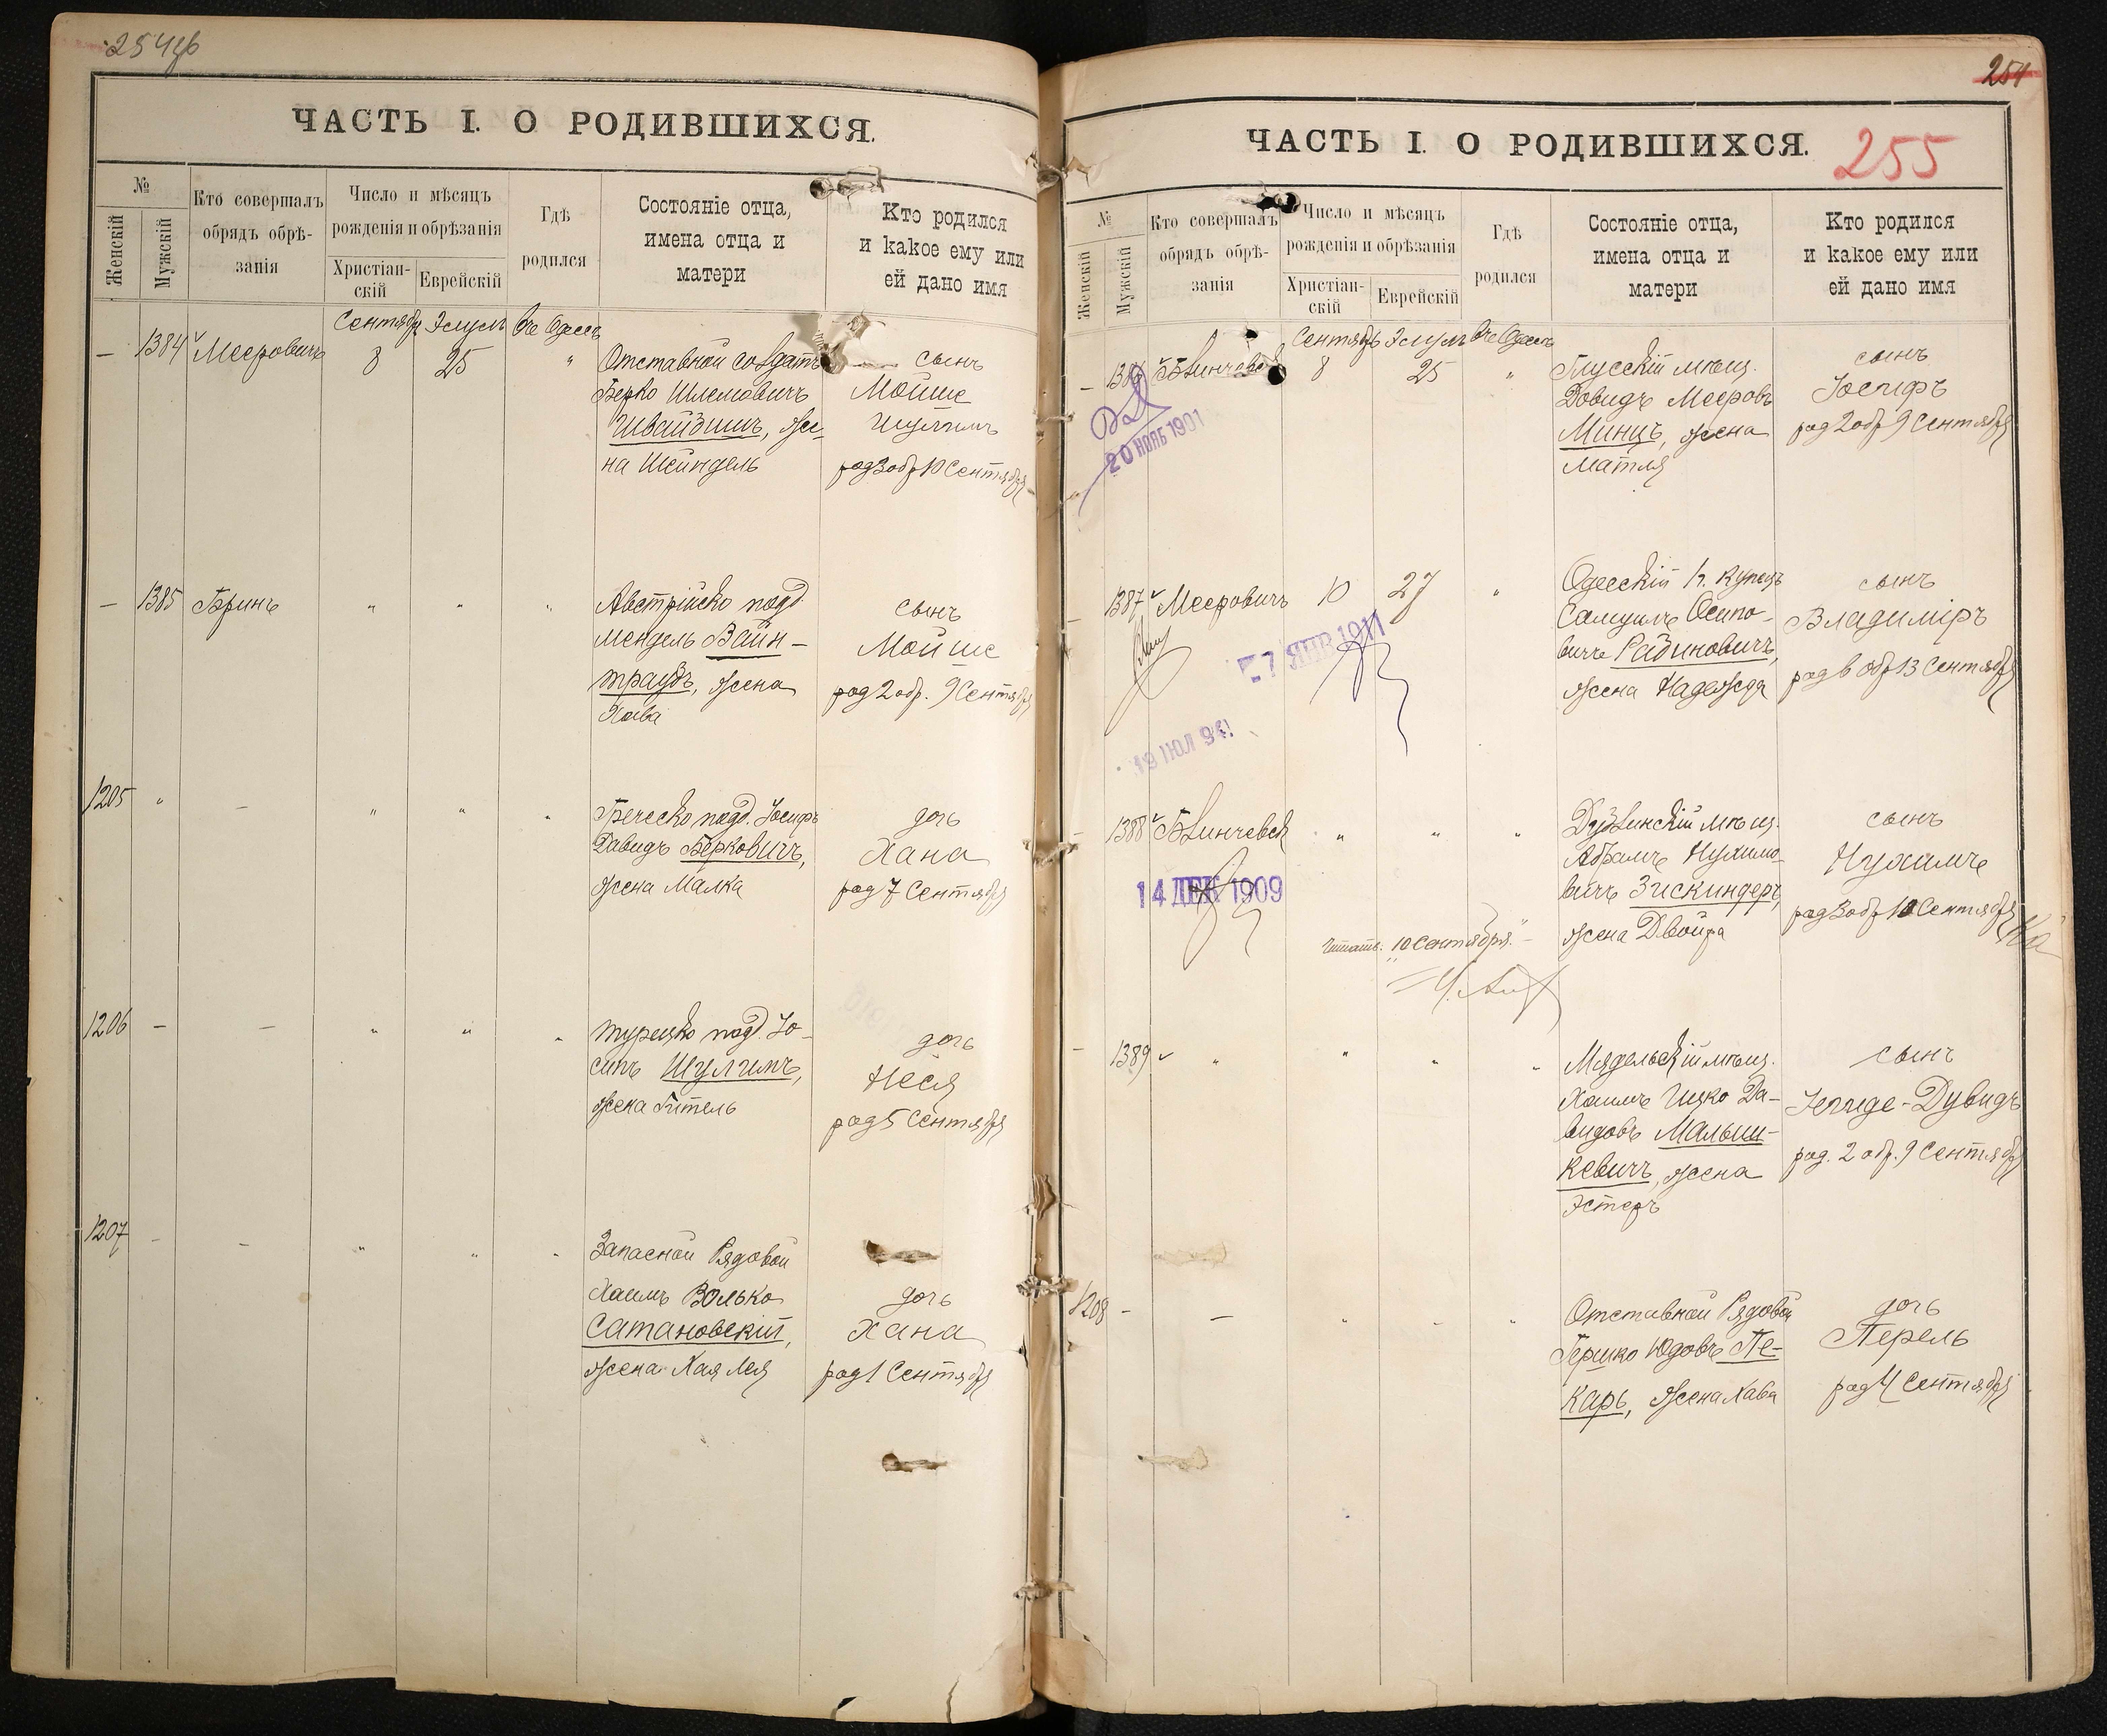 254
ЧАСТЬ I. О РОДИВШИХСЯ.
№
Женскій
Мужскій
Кто совершалъ
обрядъ обрѣ-
занія
Число и мѣсяцъ
рожденія и обрѣзанія
Христіан-
скій
Еврейскій
Гдѣ
родился
Состояніе отца,
имена отца и
матери
Кто родился
и какое ему или
ей дано имя
Сентябрь Элулъ въ Одессѣ
— 1384 Мееровичъ 8 25 "
Отставной солдатъ
Берко Шлемовичъ
Швайдишъ, же-
на Шейндель
сынъ
Мойше
Шулимъ
род 3 обр 10 Сентября
— 1385 Бринъ " " "
Австрійско подд.
Мендель Вайн-
траубъ, жена
Хава
сынъ
Мойше
род 2 обр. 9 Сентября
1205 " — " " "
Греческо подд. Іосифъ
Давидъ Берковичъ,
жена Малка
дочь
Хана
род 7 Сентября
1206 — — " " "
Турецко подд. Іо-
сипъ Шулимъ,
жена Гитель
дочь
Неся
род 5 Сентября
1207 - - " " "
Запасной Рядовой
Хаимъ Волько
Сатановскій,
жена Хая Лея
дочь
Хана
род 1 Сентября
254
255
ЧАСТЬ I. О РОДИВШИХСЯ.
№
Женскій
Мужскій
Кто совершалъ
обрядъ обрѣ-
занія
Число и мѣсяцъ
рожденія и обрѣзанія
Христіан-
скій
Еврейскій
Гдѣ
родился
Состояніе отца,
имена отца и
матери
Кто родился
и какое ему или
ей дано имя
Сентябрь Элулъ въ Одессѣ
— 1386 Блинчевск 8 25 "
20 НОЯБ 1901
Глусскій мѣщ.
Довидъ Мееровъ
Минцъ, жена
Матля
сынъ
Іосифъ
род 2 обр 9 Сентября
1387 Мееровичъ 10 27 "
7 ЯНВ 1911
Одесскій к. купецъ
Самуилъ Осипо-
вичъ Рабиновичъ,
жена Надежда
сынъ
Владиміръ
род 6 обр 13 Сентября
19 ІЮЛ 94
1388 Блинчевск " " "
14 ДЕК 1909
Дубинскій мѣщ.
Абрамъ Нухимо-
вичъ Зискиндеръ,
жена Двойра
сынъ
Нухимъ
род 3 обр 10 Сентября
Читать: "10 Сентября."
- 1389 " " " "
Мядельскій мѣщ.
Хаимъ Ицко Да-
видовъ Малыш-
кевичъ, жена
Эстеръ
сынъ
Іегуде-Дувидъ
род. 2 обр. 9 Сентября
1208 - — " - "
Отставной Рядовой
Гершко Юдовъ Пе-
карь, жена Хава
дочь
Перель
род 4 Сентября